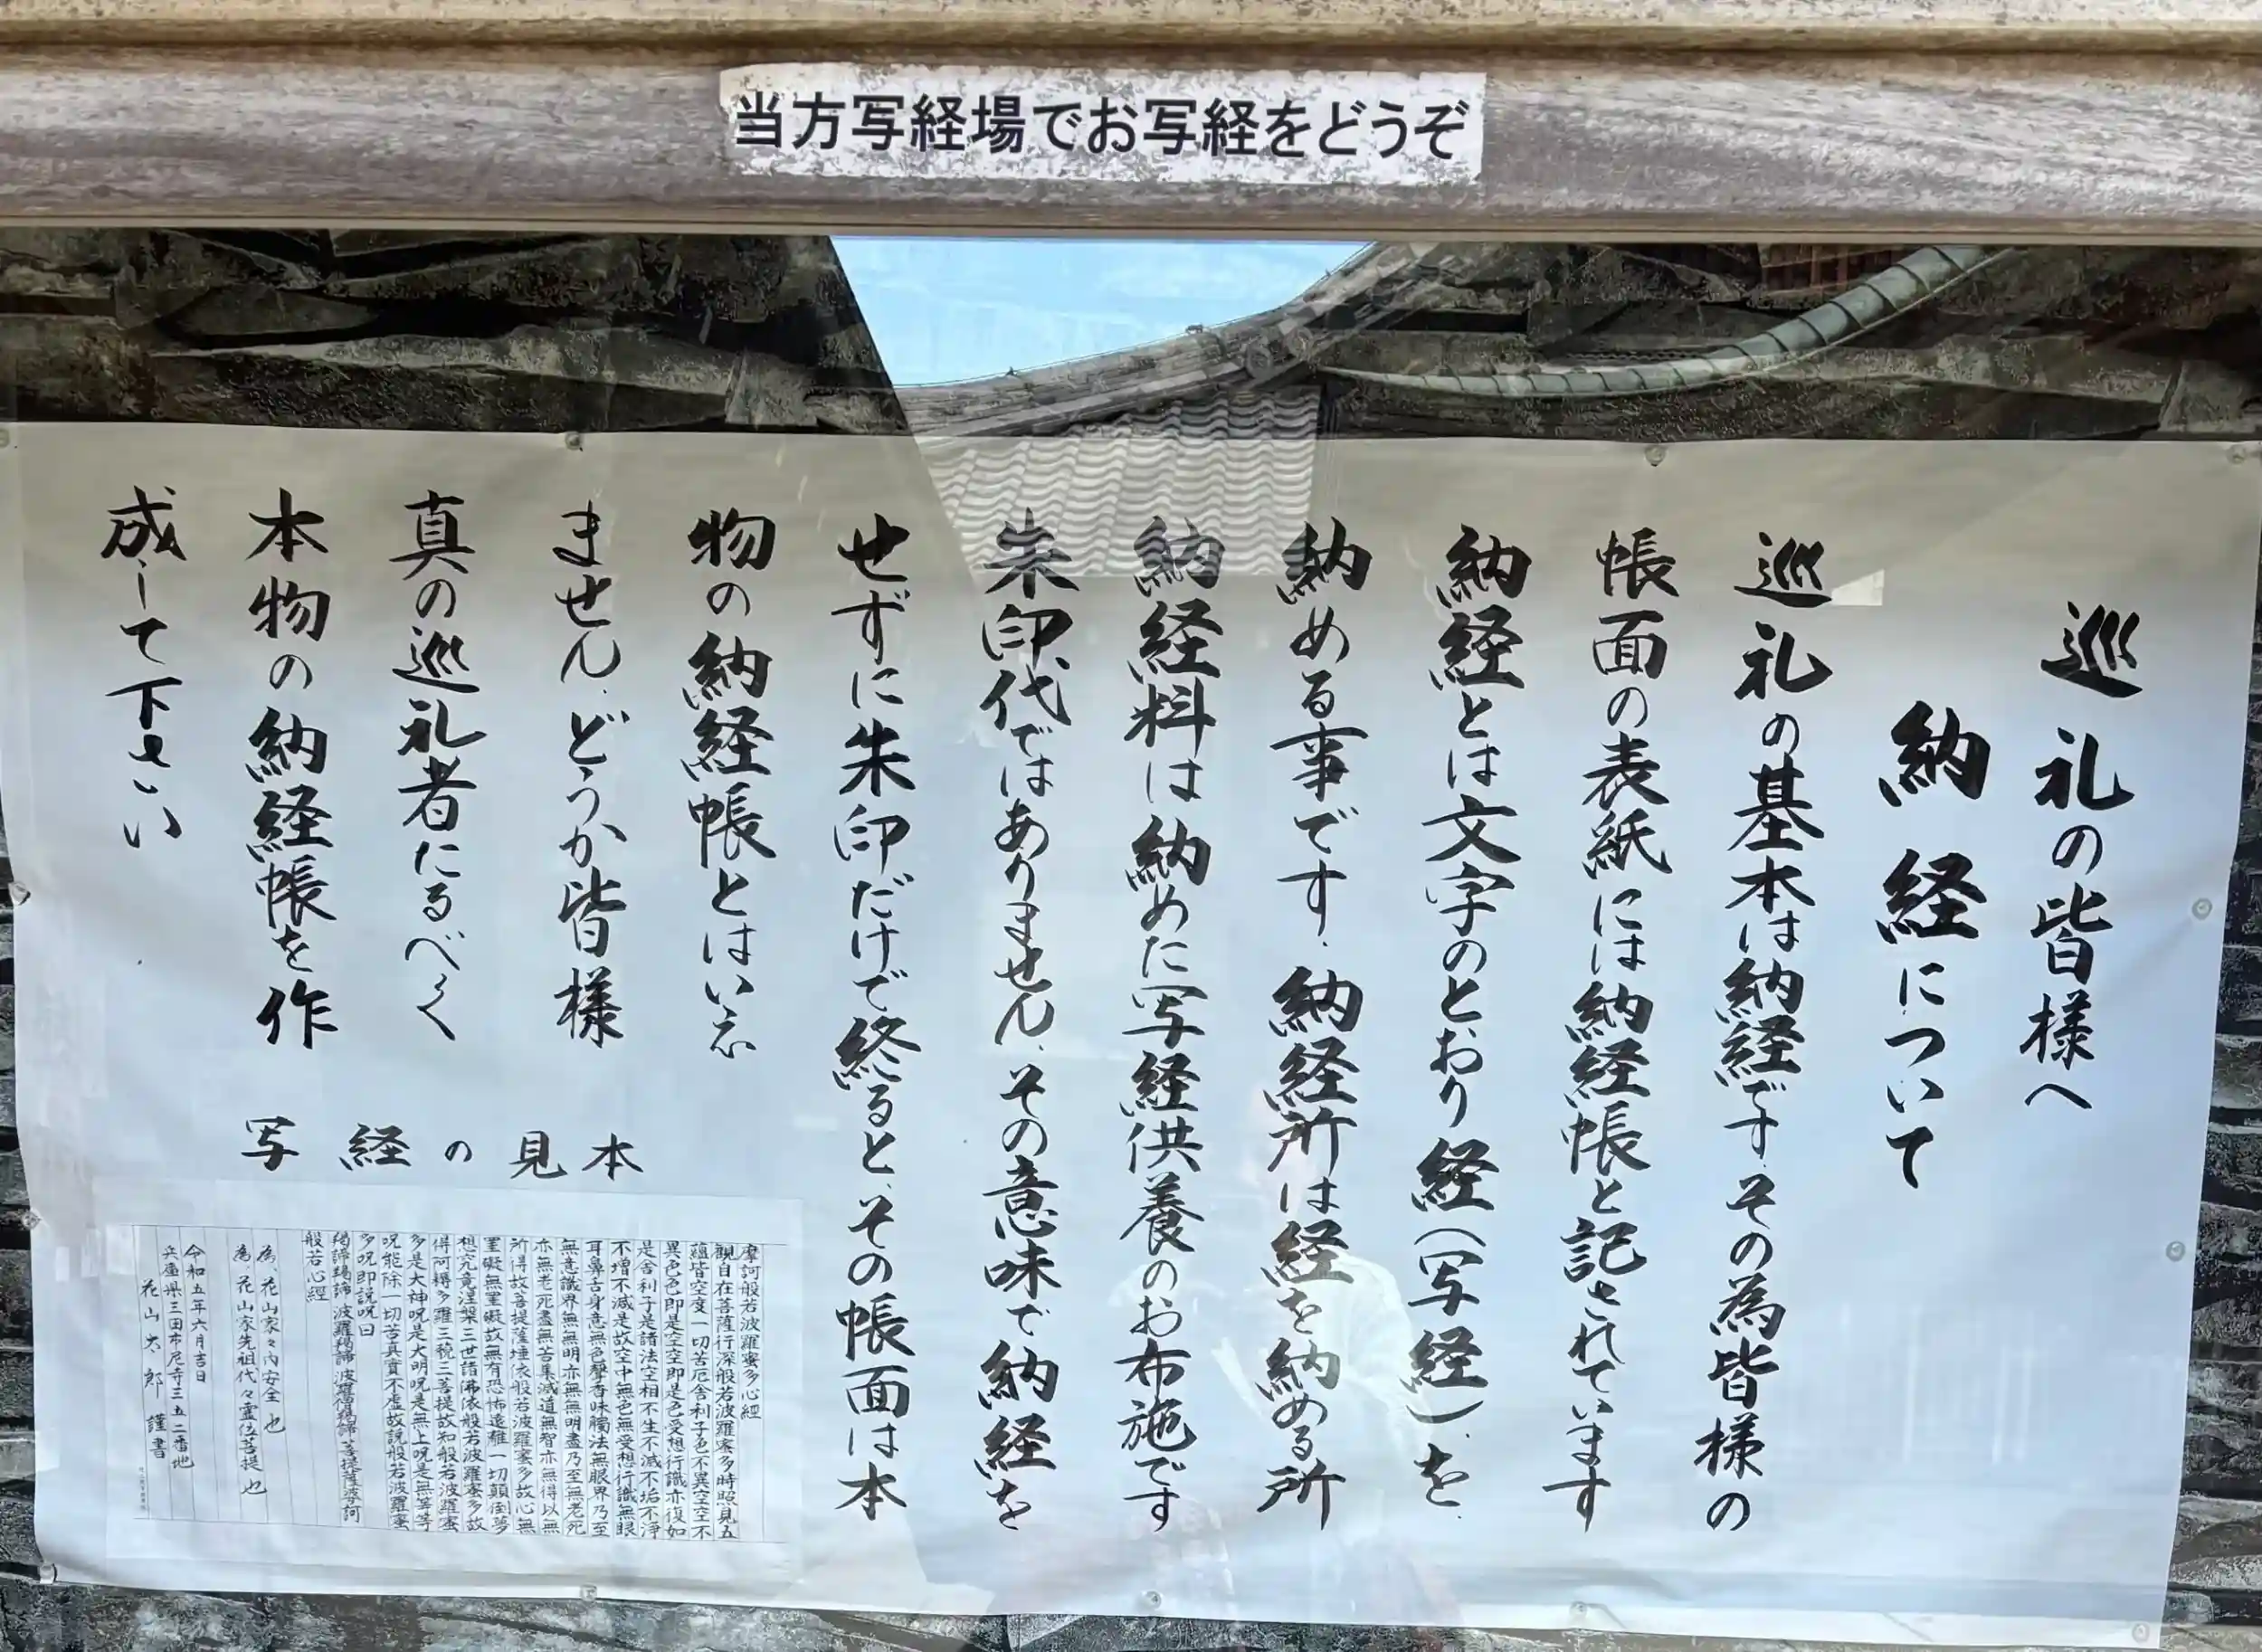 当方写経場でお写経をどうぞ
巡礼の皆様へ
納経について
巡礼の基本は納経です。その為皆様の
帳面の表紙には納経帳と記されています
納経とは文字のとおり経(写経)を、
納める事です。納経所は経を納める所
納経料は納めた写経供養のお布施です
朱印代ではありません、その意味で納経を
せずに朱印だけで終ると、その帳面は本
物の納経帳とはいえ
ません、どうか皆様
真の巡礼者たるべく
本物の納経帳を作
成して下さい
写経の見本
摩訶般若波羅蜜多心經
観自在菩薩行深般若波羅蜜多時照見五
蘊皆空度一切苦厄舎利子色不異空空不
異色色即是空空即是色受想行識亦復如
是舎利子是諸法空相不生不滅不垢不浄
不増不減是故空中無色無受想行識無眼
耳鼻舌身意無色聲香味觸法無眼界乃至
無意識界無無明亦無無明盡乃至無老死
亦無老死盡無苦集滅道無智亦無得以無
所得故菩提薩埵依般若波羅蜜多故心無
罣礙無罣礙故無有恐怖遠離一切顛倒夢
想究竟涅槃三世諸佛依般若波羅蜜多故
得阿耨多羅三藐三菩提故知般若波羅蜜
多是大神呪是大明呪是無上呪是無等等
呪能除一切苦真實不虚故説般若波羅蜜
多呪即説呪曰
羯諦羯諦 波羅羯諦 波羅僧羯諦 菩提薩婆訶
般若心經
為 花山家々内安全 也
為 花山家先祖代々霊位菩提 也
令和五年六月吉日
兵庫県三田市尼寺三五二番地
花山太郎 謹書